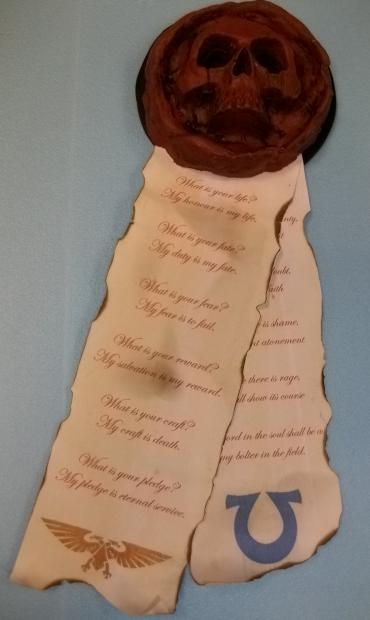 What is your life?
My honour is my life.
What is your fate?
My duty is my fate.
What is your fear?
My fear is to fail.
What is your reward?
My salvation is my reward.
What is your craft?
My craft is death.
What is your pledge?
My pledge is eternal service.
is shame,
atonement
there is rage,
show its course
in the soul shall be as
my bolter in the field.